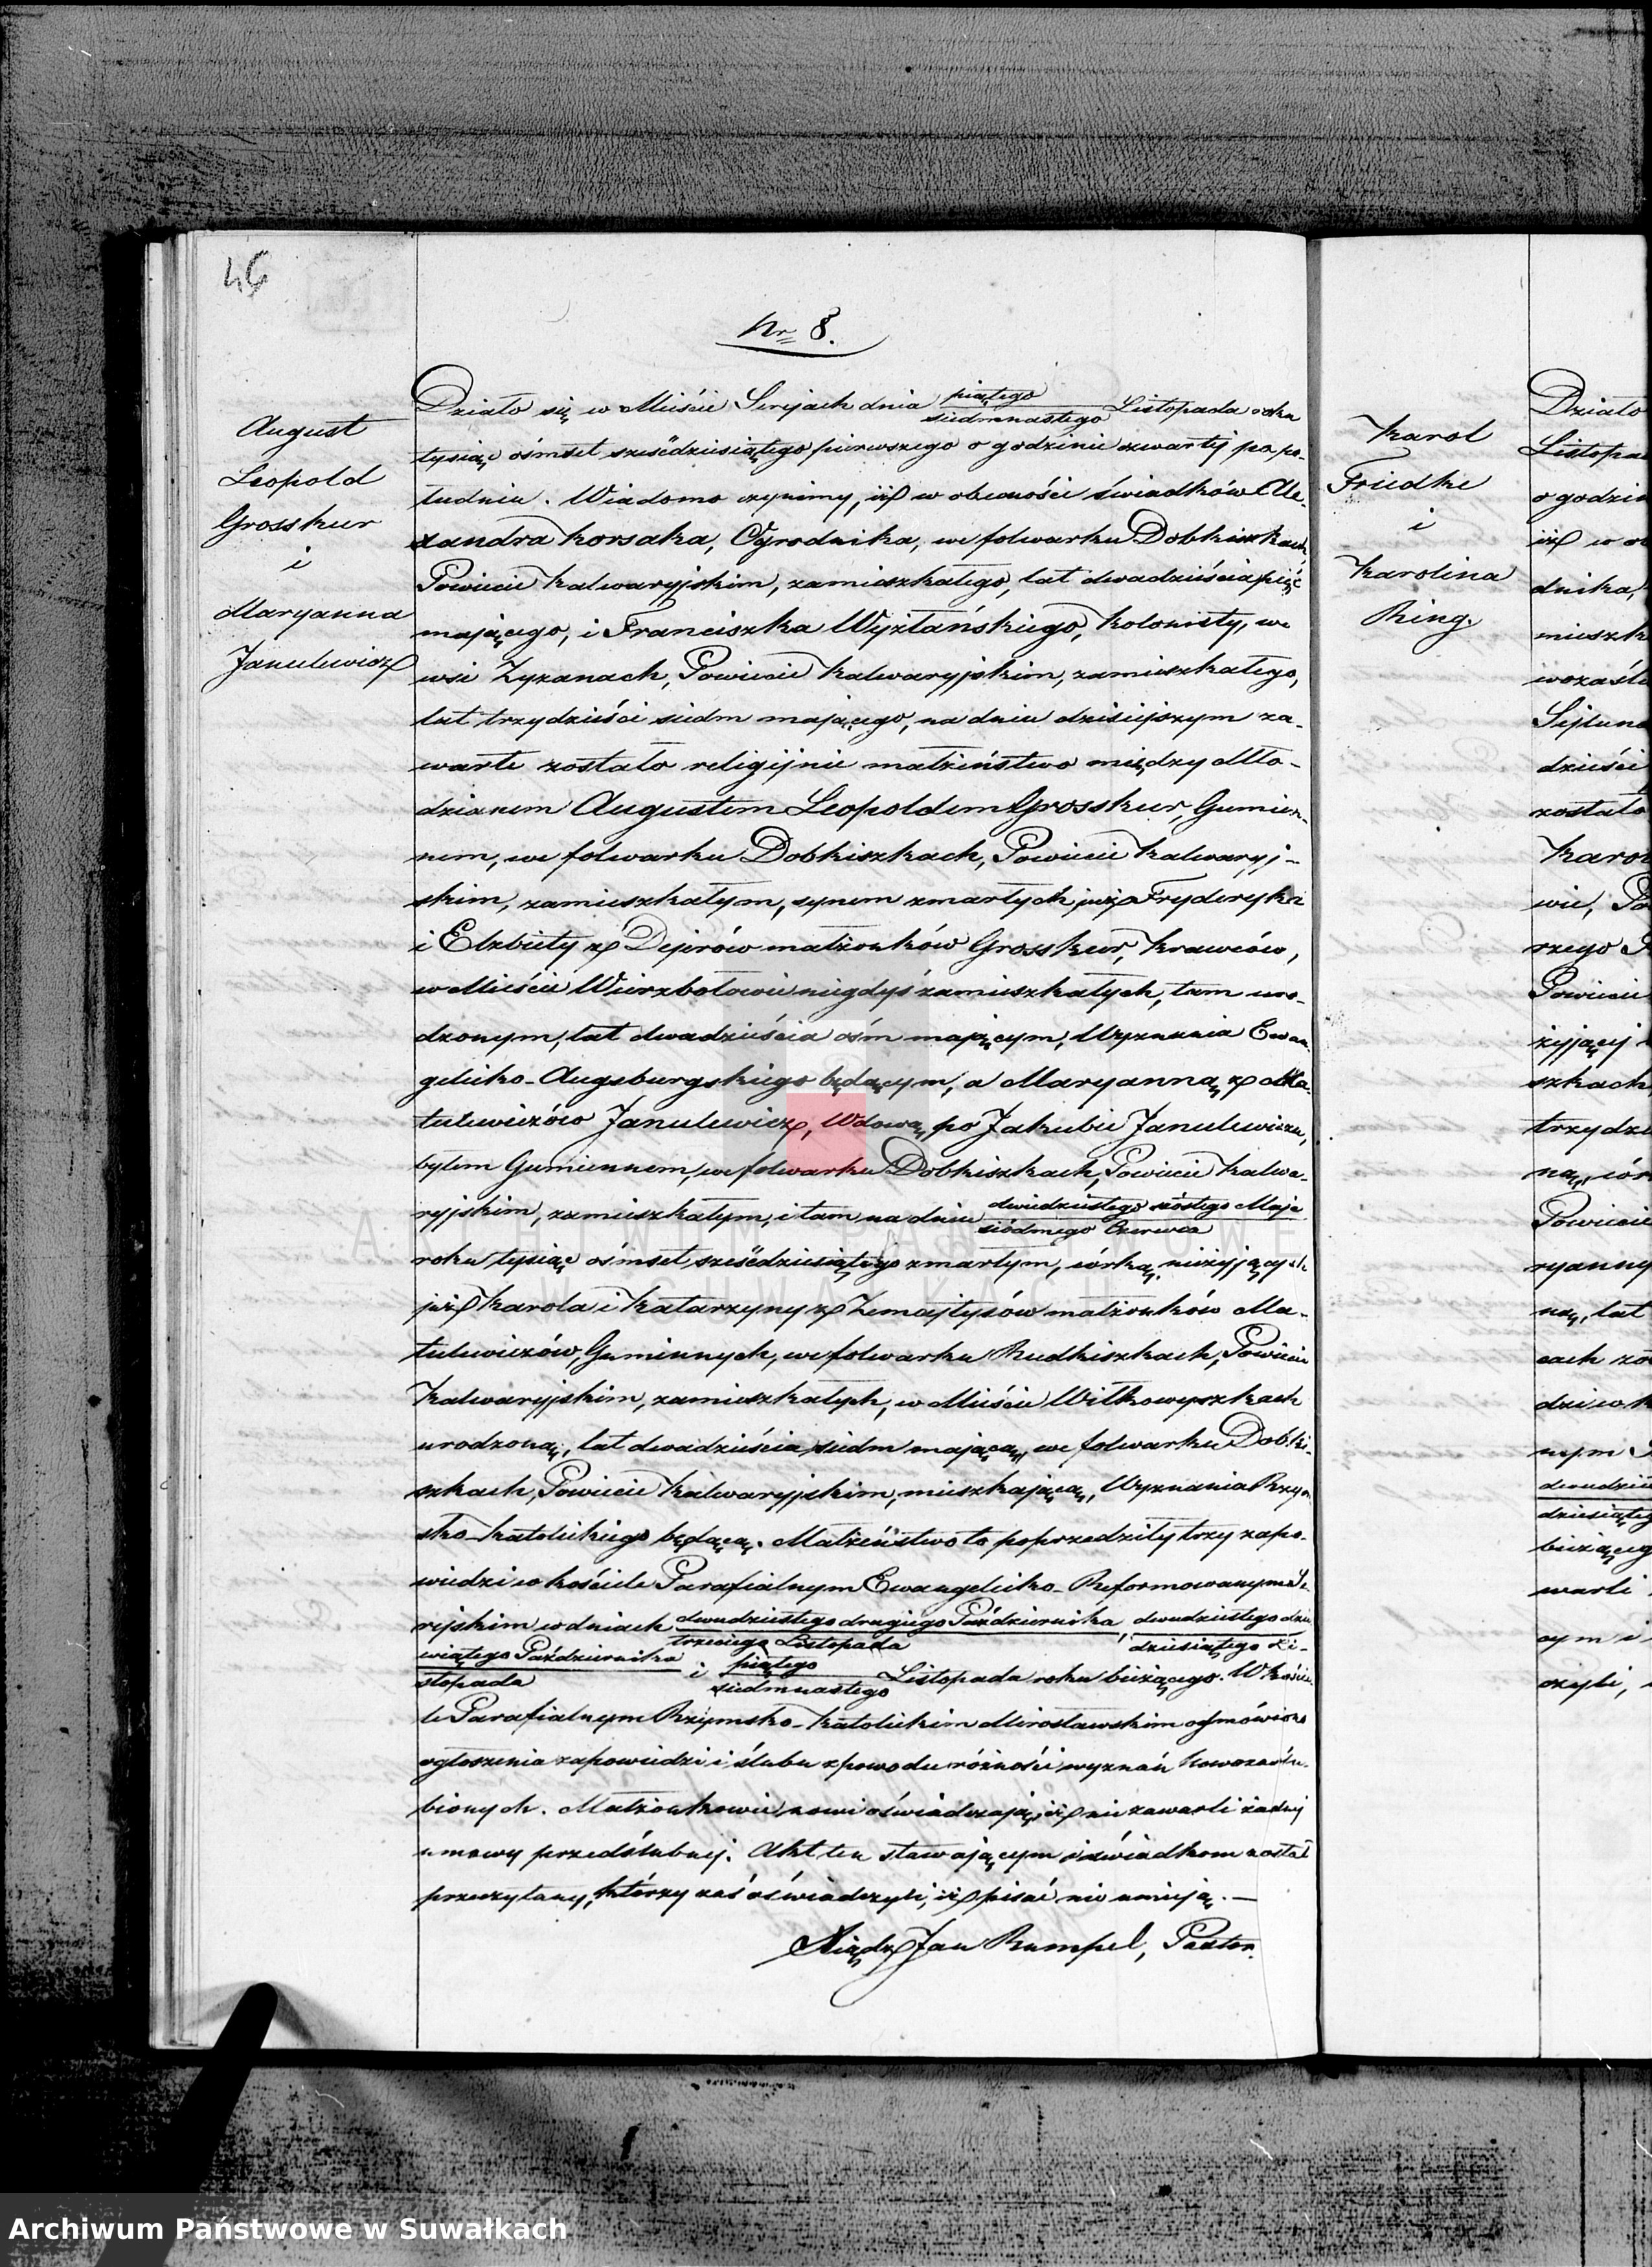 46
Nr 8.
August
Leopold
Grosskur
i
Maryanna
Janulewicz
Działo się w Mieście Serejach dnia piątego / siedmnastego Listopada roku
tysiąc ośmset sześćdziesiątego pierwszego o godzinie czwartej po po-
łudniu. Wiadomo czynimy, iż w obecności świadków Ale-
xandra Korsaka, Ogrodnika, we folwarku Dobkiszkach
Powiecie Kalwaryjskim, zamieszkałego, lat dwadzieścia pięć
mającego, i Franciszka Wyżlańskiego, Kolonisty, we
wsi Zyzanach, Powiecie Kalwaryjskim, zamieszkałego,
lat trzydzieści siedm mającego, na dniu dzisiejszym za-
warte zostało religijnie małżeństwo między Mło-
dzianem Augustem Leopoldem Grosskur, Gumien-
nem, we folwarku Dobkiszkach, Powiecie Kalwaryj-
skim, zamieszkałym, synem zmarłych już Fryderyka
i Elżbiety z Dejrów małżonków Grosskur, Krawców,
w Mieście Wierzbołowie niegdyś zamieszkałych, tam uro-
dzonym, lat dwadzieścia ośm mającym, Wyznania Ewan-
gelicko-Augsburgskiego będącym, a Maryanną z Ma-
tulewiczów Janulewicz, Wdową po Jakubie Janulewiczu,
byłem Gumiennem, we folwarku Dobkiszkach, Powiecie Kalwa-
ryjskim, zamieszkałym, i tam na dniu dwudziestego szóstego Maja / siódmego Czerwca
roku tysiąc ośmset sześćdziesiątego zmarłym, córką nieżyjących
już Karola i Katarzyny z Żemajtysów małżonków Ma-
tulewiczów, Gumiennych, we folwarku Rudkiszkach, Powiecie
Kalwaryjskim, zamieszkałych, w Mieście Wiłkowyszkach
urodzoną, lat dwadzieścia siedm mającą, we folwarku Dobki-
szkach, Powiecie Kalwaryjskim, mieszkającą, Wyznania Rzym-
sko-Katolickiego będącą. Małżeństwo to poprzedziły trzy zapo-
wiedzi w kościele Parafialnym Ewangelicko-Reformowanym Se-
rejskim w dniach dwudziestego drugiego Października / trzeciego Listopada, dwudziestego dzie-
wiątego Października / dziesiątego Li-
stopada i piątego / siedmnastego Listopada roku bieżącego. W koście-
le Parafialnym Rzymsko-Katolickim Mirosławskim odmówiono
ogłoszenia zapowiedzi i ślubu z powodu różności wyznań Nowozaślu-
bionych. Małżonkowie nowi oświadczają, iż nie zawarli żadnej
umowy przedślubnej. Akt ten stawającym i świadkom został
przeczytany, którzy zaś oświadczyli, iż pisać nie umieją. —
Xiądz Jan Rumpel, Pastor.
Karol
Friedke
i
Karolina
Ring.
Działo
Listopa
o godzin
iż w o
dnika,
mieszk
dzieści
zostało
Karo
wie, Po
rzego
Powiecie
żyjącej
szkach
trzydzi
ną, cór
Powiecie
ryanny
ną, lat
nym
dziesiąteg
bieżąceg
warli
cym i
czyli,
Archiwum Państwowe w Suwałkach